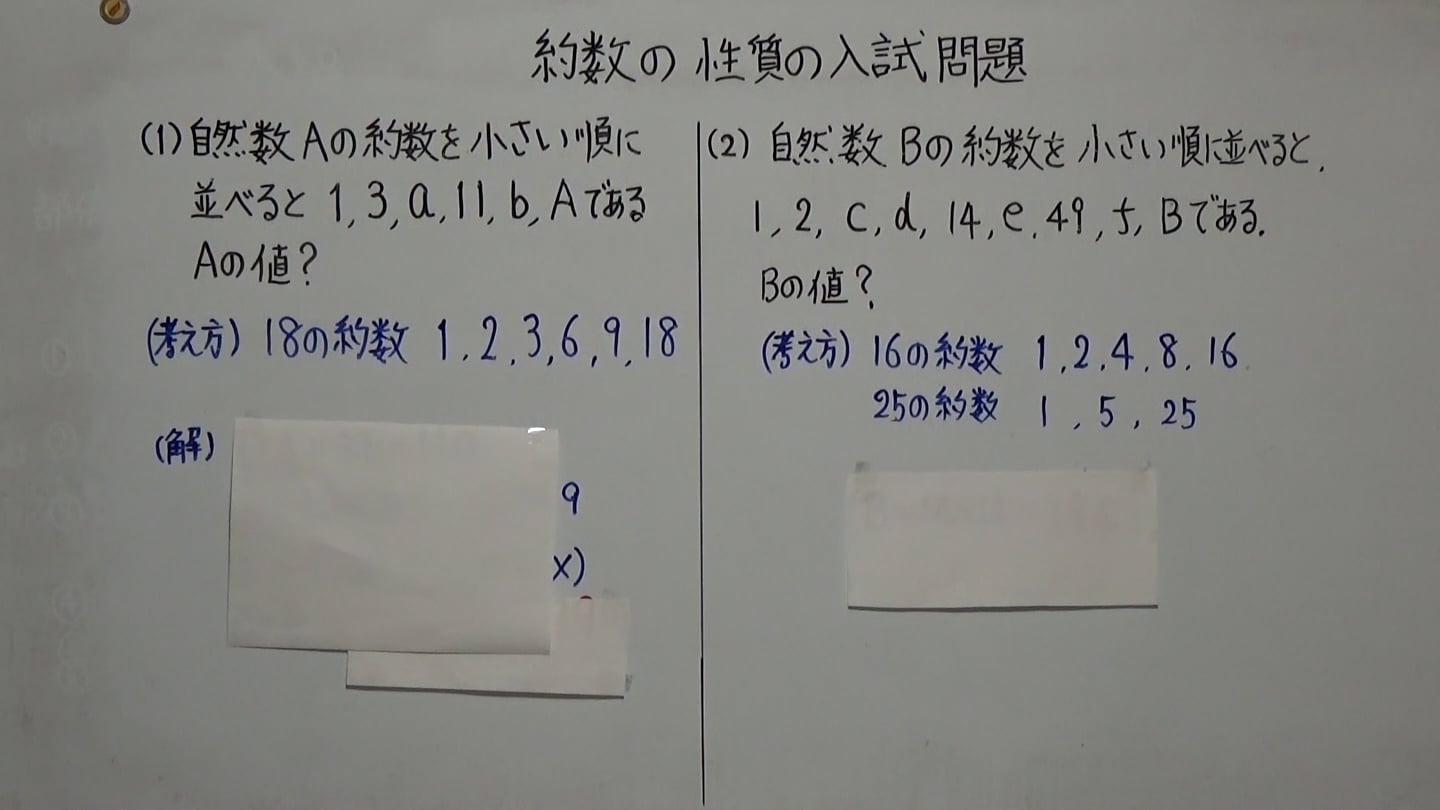 約数の性質の入試問題
(1) 自然数Aの約数を小さい順に
並べると 1, 3, a, 11, b, Aである
Aの値?
(考え方) 18の約数 1, 2, 3, 6, 9, 18
(解)
9
×)
(2) 自然数Bの約数を小さい順に並べると,
1, 2, c, d, 14, e, 49, f, Bである.
Bの値?
(考え方) 16の約数 1, 2, 4, 8, 16
25の約数 1, 5, 25